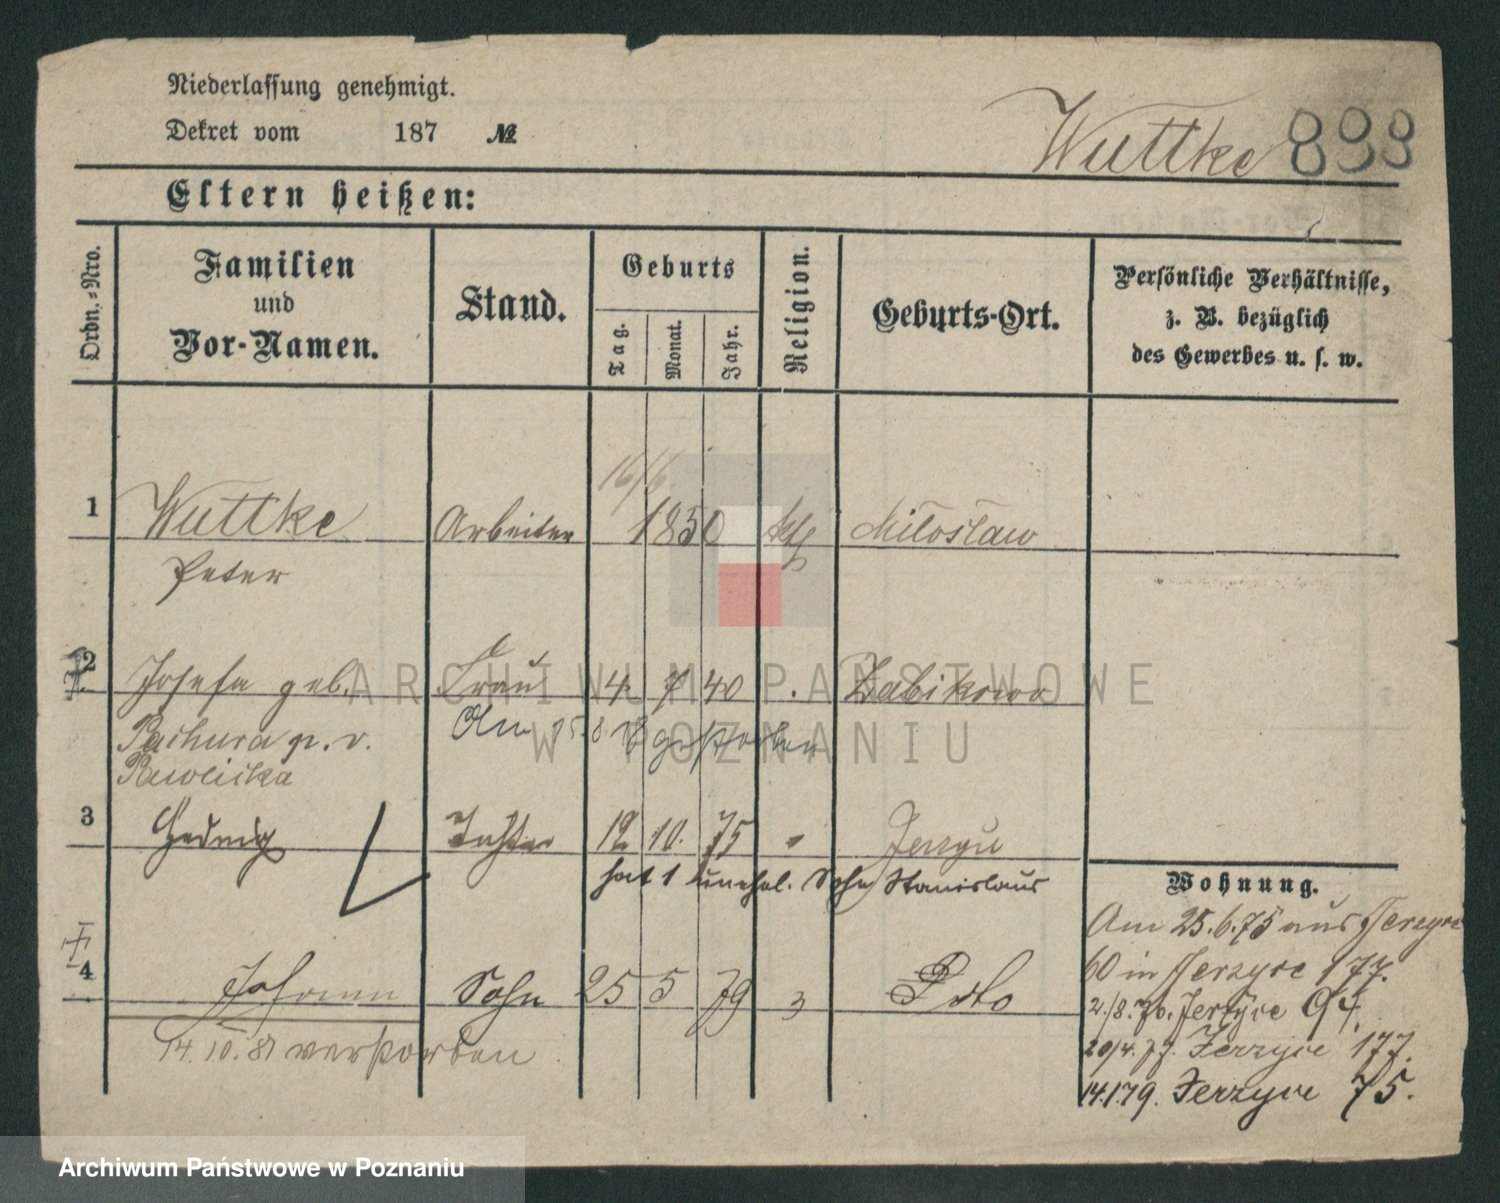 Niederlassung genehmigt.
Dekret vom 187 №
Wuttke 898
Eltern heißen:
Ordn.-Nro.
Familien und Vor-Namen.
Stand.
Geburts
Tag. Monat. Jahr.
Religion.
Geburts-Ort.
Persönliche Verhältnisse,
z. B. bezüglich
des Gewerbes u. s. w.
16/6
1 Wuttke Arbeiter 1850 kth Miloslaw
Peter
2 Josefa geb. Frau 4. 7 40 . Zabikowo
Pachura g. v. Am 15.8. gestorben
Pawlicka
3 Hedwig Tochter 12. 10. 75 " Jerzyce
hat 1 unehel. Sohn Stanislaus
4 Johann Sohn 25 5 79 Dito
14.10.81 verstorben
Wohnung.
Am 25.6.75 aus Jerzyce
60 in Jerzyce 177.
2/8.76. Jerzyce 94.
20/4.77. Jerzyce 177.
14.1.79. Jerzyce 75.
ARCHIWUM PAŃSTWOWE
W POZNANIU
Archiwum Państwowe w Poznaniu